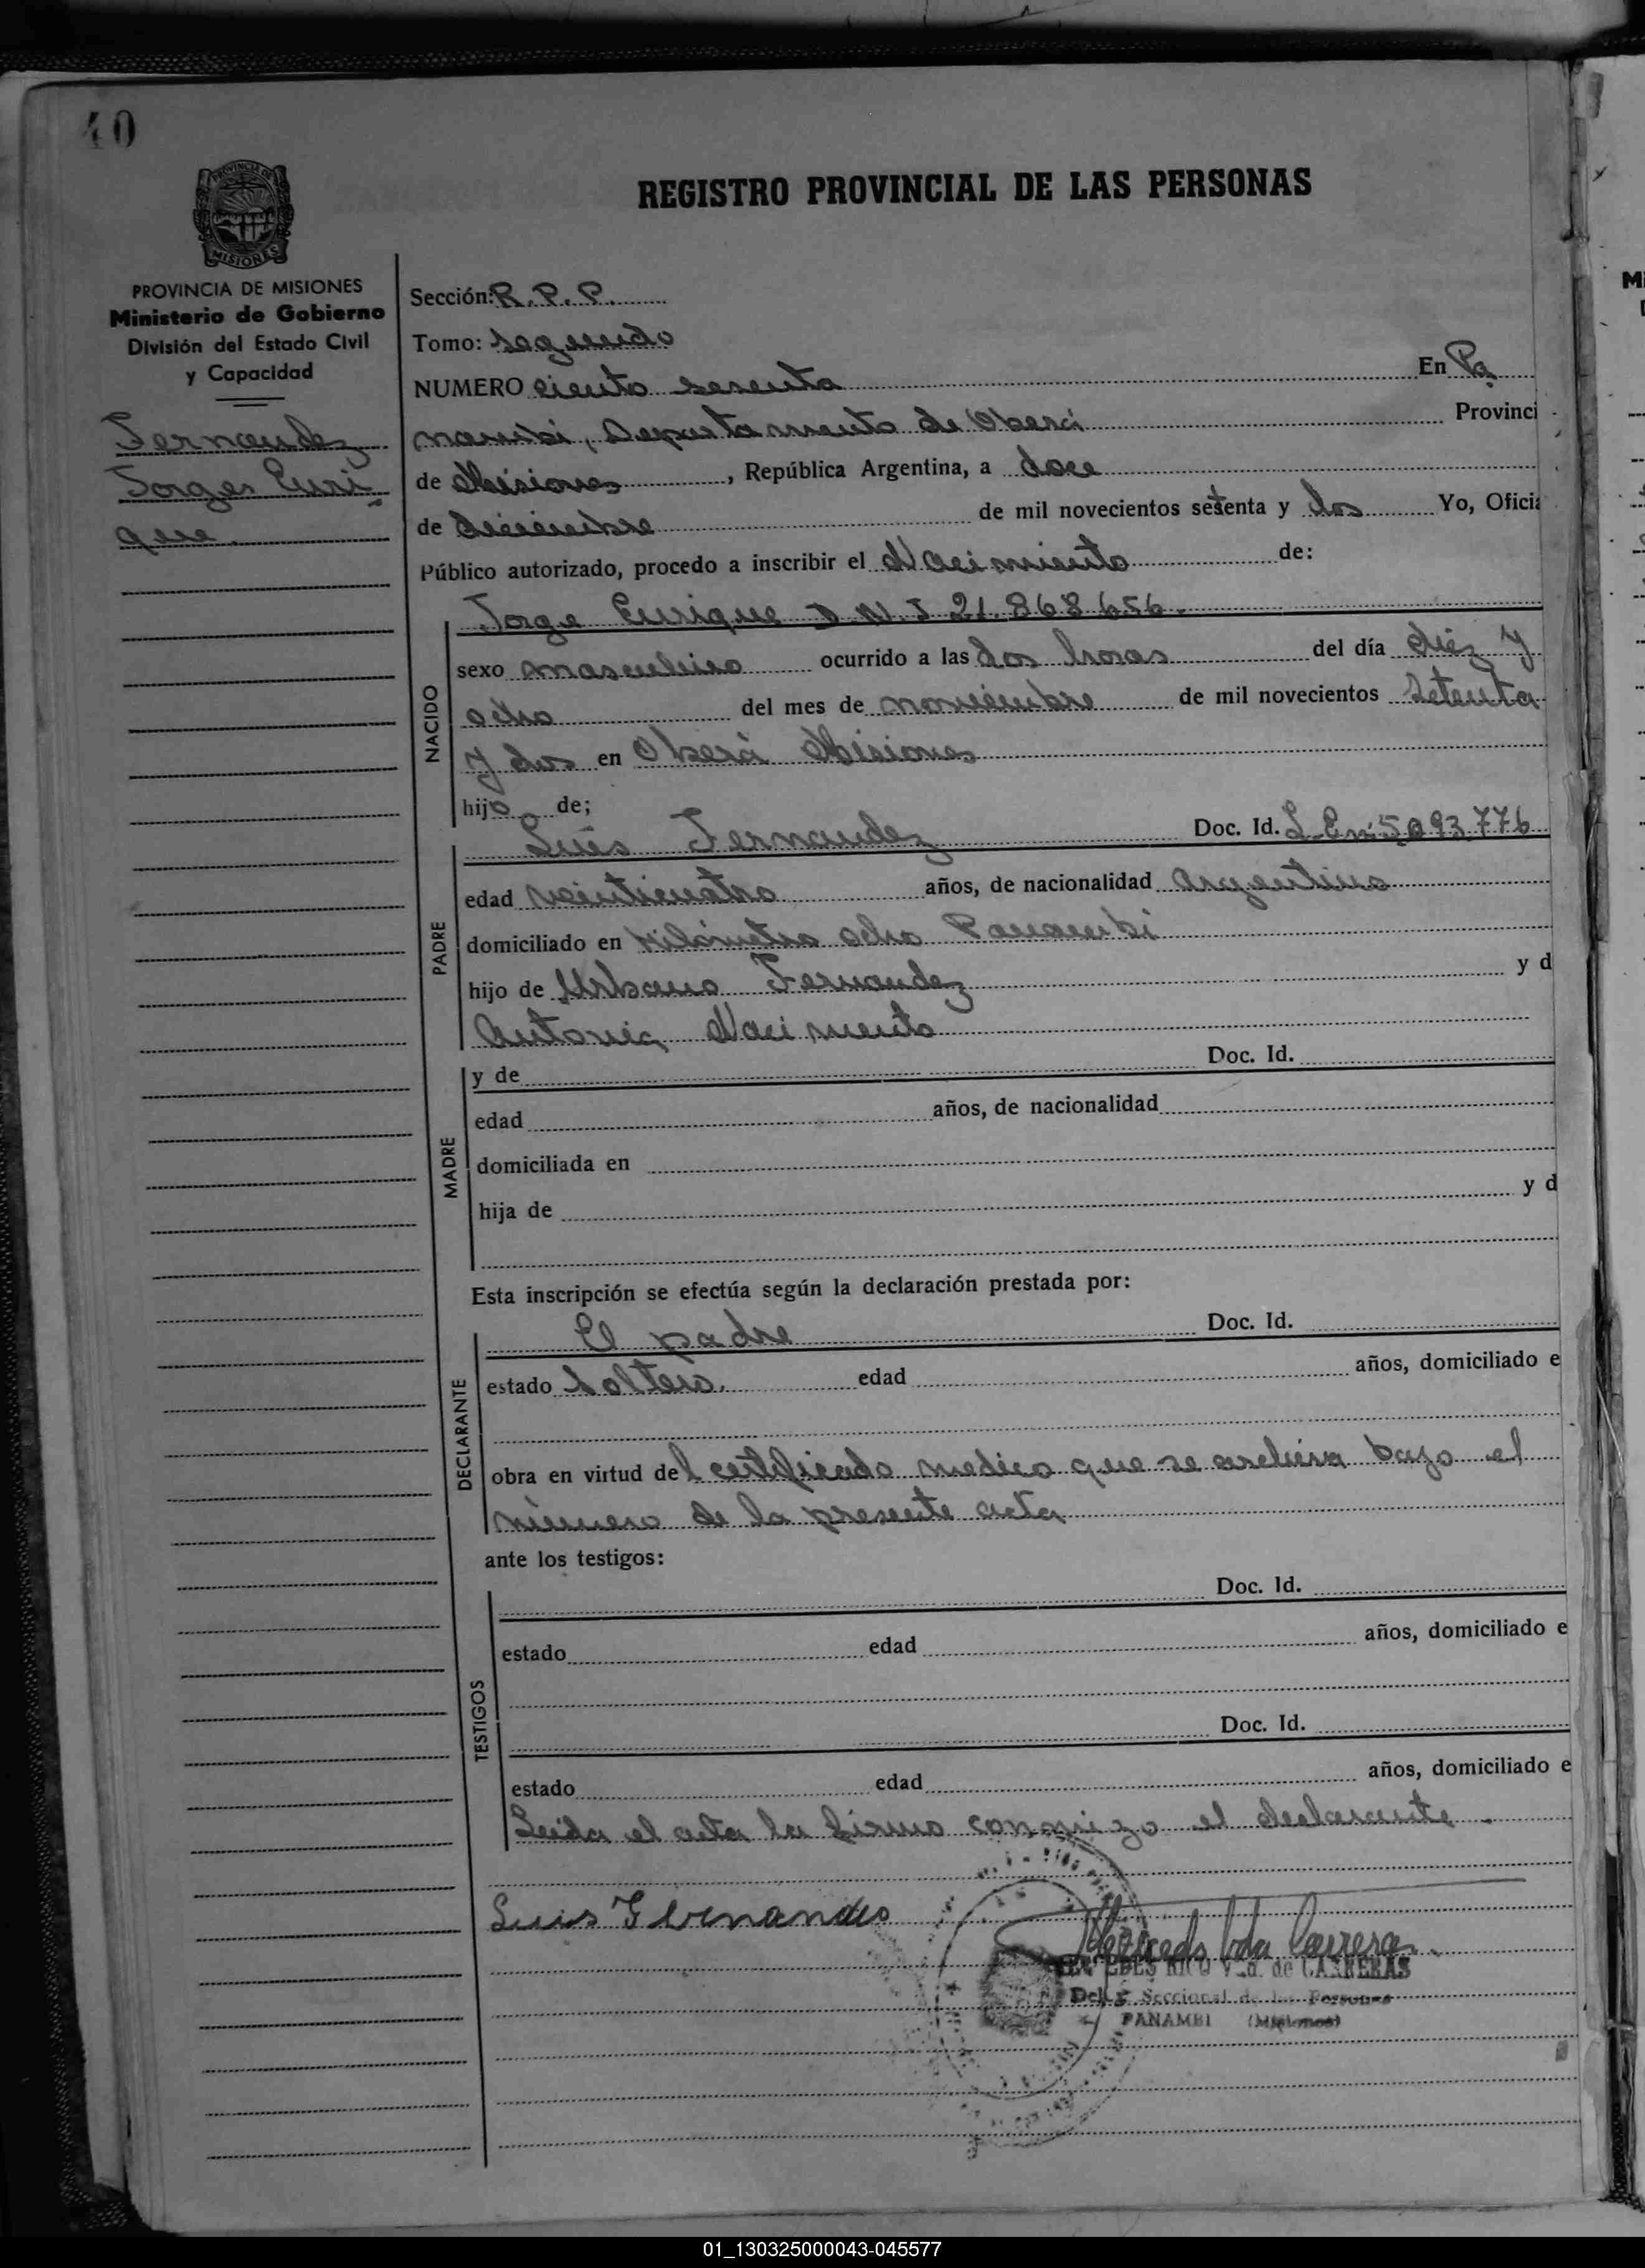 40
PROVINCIA DE
MISIONES
REGISTRO PROVINCIAL DE LAS PERSONAS
PROVINCIA DE MISIONES
Ministerio de Gobierno
División del Estado Civil
y Capacidad
Fernandez
Jorges Enri
que.
Sección: R. P. P.
Tomo: segundo
NUMERO ciento sesenta En Pa
nambi, Departamento de Oberá Provinci
de Misiones, República Argentina, a doce
de diciembre de mil novecientos setenta y dos Yo, Oficia
Público autorizado, procedo a inscribir el Nacimiento de:
Jorge Enrique D N I 21.868.656.
NACIDO
sexo masculino ocurrido a las dos horas del día diez y
ocho del mes de noviembre de mil novecientos setenta
y dos en Oberá Misiones
hijo de;
Luis Fernandez Doc. Id. L En: 5093776
PADRE
edad veinticuatro años, de nacionalidad argentino
domiciliado en kilómetro ocho Panambi
hijo de Urbano Fernandez y d
Antonia Nacimento
y de Doc. Id.
MADRE
edad años, de nacionalidad
domiciliada en
hija de y d
Esta inscripción se efectúa según la declaración prestada por:
El padre Doc. Id.
DECLARANTE
estado soltero. edad años, domiciliado e
obra en virtud del certificado medico que se archiva bajo el
número de la presente acta
ante los testigos:
Doc. Id.
TESTIGOS
estado edad años, domiciliado e
Doc. Id.
estado edad años, domiciliado e
Leida el acta la firma conmigo el declarante.
Luis Fernandes
Vda Carrera
V_d. de CARRERAS
Seccional de las Personas
PANAMBI (Misiones)
01_130325000043-045577